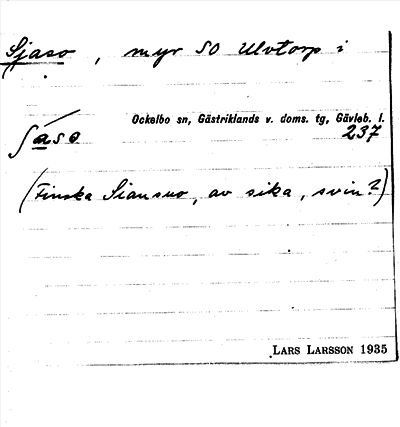 Sjaso, myr SO Ulvtorp i
Ockelbo sn, Gästriklands v. doms. tg, Gävleb. l.
237
(Finska Siansuo, av sika, svin?)
LARS LARSSON 1935